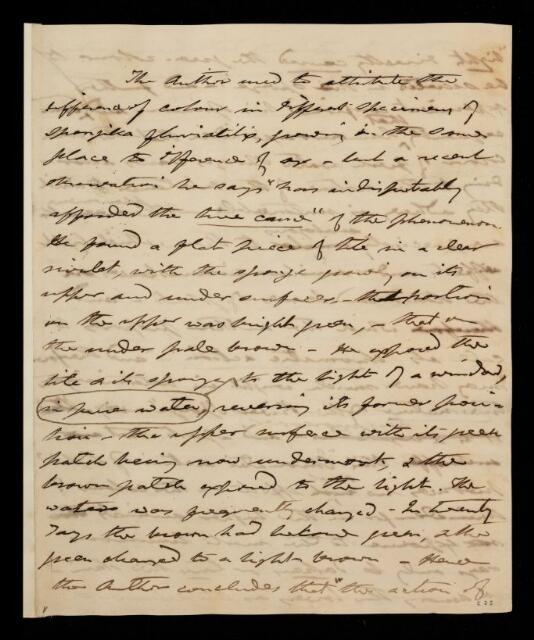 The Author used to attribute the
difference of colour in different specimens of
Spongilla fluviatilis, growing in the same
place to difference of age - but a recent
observation he says "has indisputably
afforded the true cause" of the phenomenon.
He found a flat piece of tile in a clear
rivulet, with the sponge growing on its
upper and under surfaces - that portion
on the upper was bright green, - that on
the under pale brown - He exposed the
tile & its sponge to the light of a window,
in pure water, reversing its former posi-
tion - the upper surface with its green
patch being now undermost, & the
brown patch exposed to the light. The
water was frequently changed - In twenty
days the brown had become green, & the
green changed to a light brown - Hence
the Author concludes that "the action of